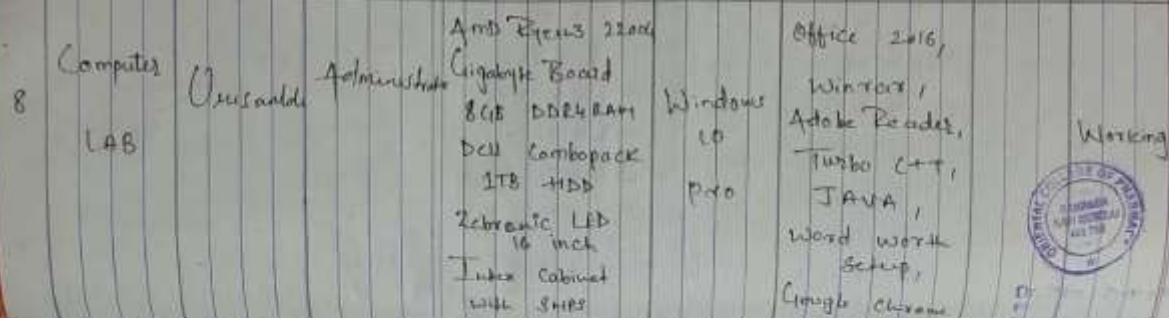 8
Computer
LAB
Administrato
AMD Ryzen3 2200G
Gigabyte Board
8GB DDR4 RAM
Dell Combopack
1TB HDD
Zebronic LED
16 inch
Intex Cabinet
with SMPS
Windows
10
pro
Office 2016,
Winrar,
Adobe Reader,
Turbo C++,
JAVA,
Word worth
Setup,
Google Chrome
Working
ORIENTAL COLLEGE OF PHARMACY